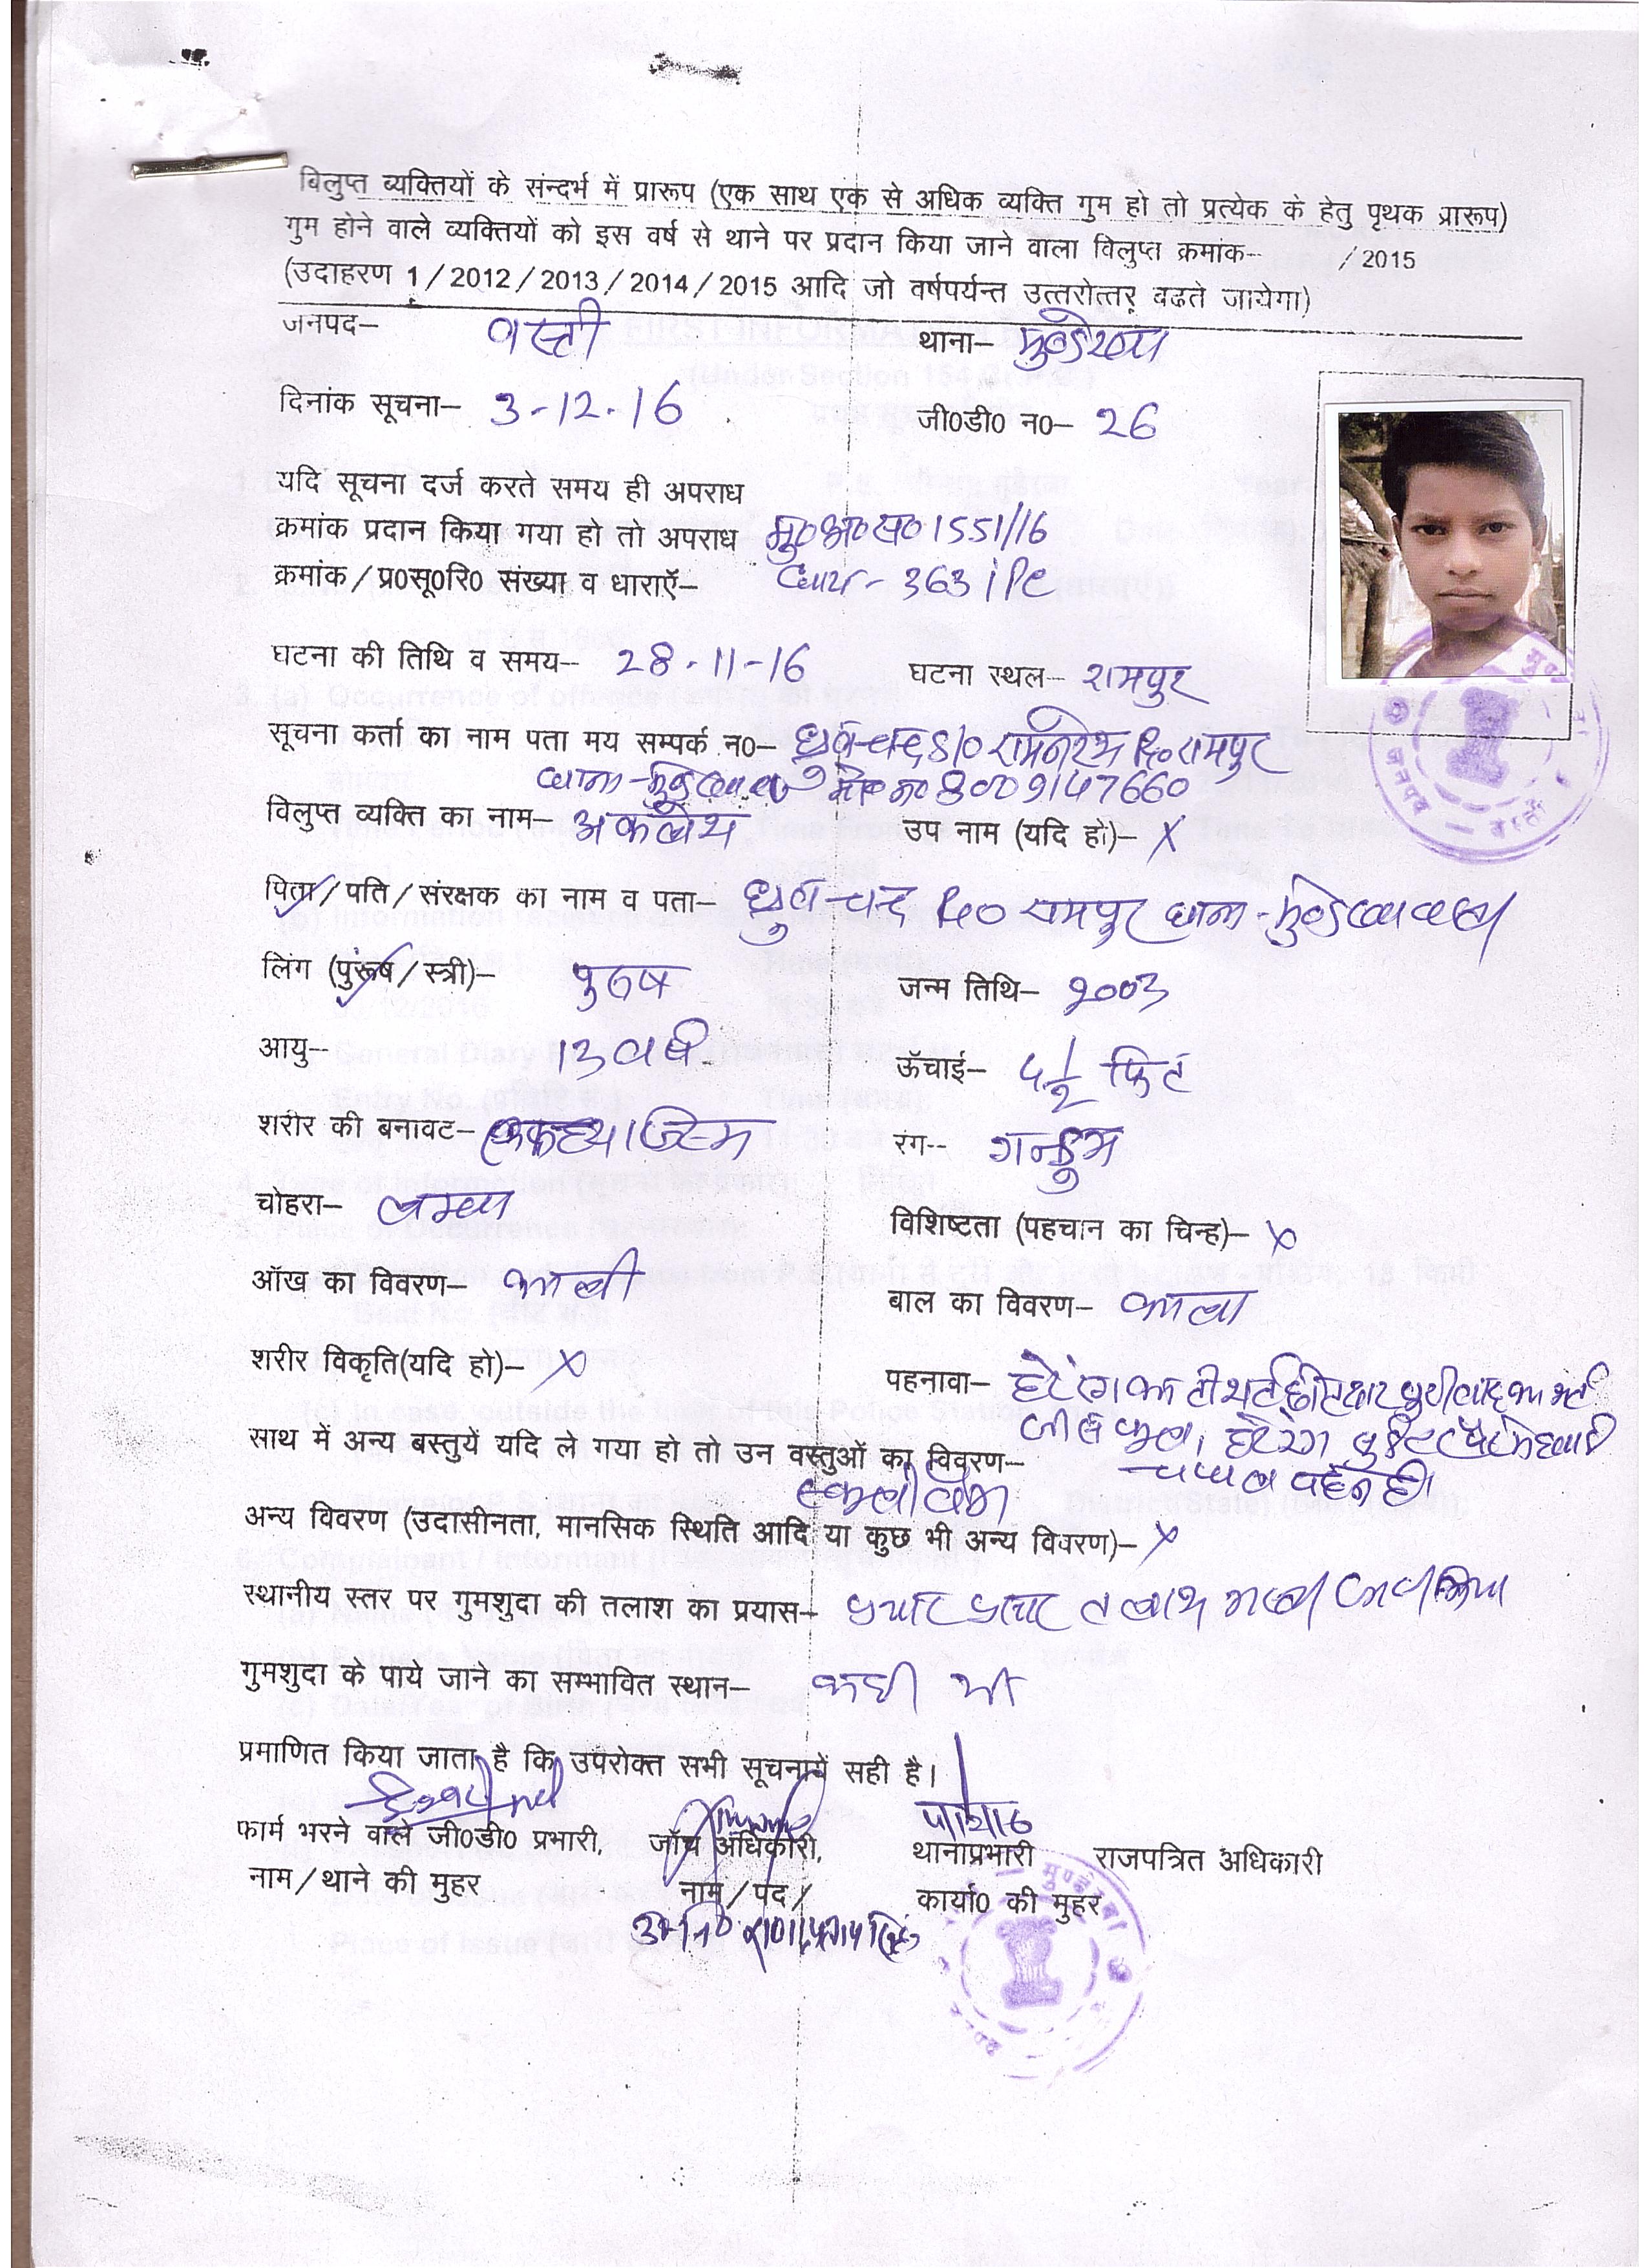 विलुप्त व्यक्तियों के संन्दर्भ में प्रारूप (एक साथ एक से अधिक व्यक्ति गुम हो तो प्रत्येक के हेतु पृथक प्रारूप)
गुम होने वाले व्यक्तियों को इस वर्ष से थाने पर प्रदान किया जाने वाला विलुप्त क्रमांक-- /2015
(उदाहरण 1/2012/2013/2014/2015 आदि जो वर्षपर्यन्त उत्तरोत्तर बढते जायेगा)
जनपद– बस्ती थाना– मुण्डेरवा
दिनांक सूचना– 3-12-16 जी0डी0 न0– 26
यदि सूचना दर्ज करते समय ही अपराध
क्रमांक प्रदान किया गया हो तो अपराध मु0अ0स0 1551/16
क्रमांक/प्र0सू0रि0 संख्या व धाराऍ– धारा - 363 IPC
घटना की तिथि व समय-- 28-11-16 घटना स्थल– रामपुर
सूचना कर्ता का नाम पता मय सम्पर्क न0– ध्रुव चन्द S/0 R/0 रामपुर
थाना - मुण्डेरवा मो0 न0 8009147660
विलुप्त व्यक्ति का नाम– अकलेश उप नाम (यदि हो)– X
पिता/पति/संरक्षक का नाम व पता– ध्रुव चन्द R/0 रामपुर थाना - मुण्डेरवा बस्ती
लिंग (पुंरूष/स्त्री)– पुरुष जन्म तिथि– 2003
आयु-- 13 वर्ष ऊँचाई– 4 1/2 फिट
शरीर की बनावट– एकहरा जिस्म रंग--
चोहरा– लम्बा विशिष्टता (पहचान का चिन्ह)– X
ऑख का विवरण– काली बाल का विवरण– काला
शरीर विकृति(यदि हो)– X पहनावा– हरे रंग का टी शर्ट
साथ में अन्य बस्तुयें यदि ले गया हो तो उन वस्तुओं का विवरण– हरे रंग
चप्पल पहने है
स्कूली बैग
अन्य विवरण (उदासीनता, मानसिक स्थिति आदि या कुछ भी अन्य विवरण)– X
स्थानीय स्तर पर गुमशुदा की तलाश का प्रयास– प्रचार प्रसार तलाश
गुमशुदा के पाये जाने का सम्भावित स्थान– कही भी
प्रमाणित किया जाता है कि उपरोक्त सभी सूचनायें सही है।
फार्म भरने वाले जी0डी0 प्रभारी, जॉच अधिकारी, थानाप्रभारी राजपत्रित अधिकारी
नाम/थाने की मुहर नाम/पद/ कार्या0 की मुहर
उ0नि0 राणा प्रताप सिंह